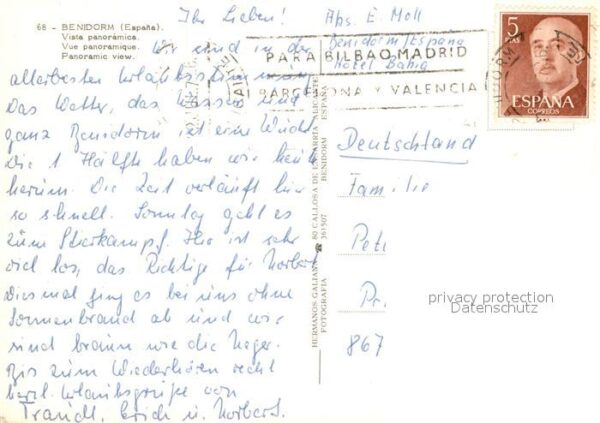 68 - BENIDORM (España).
Vista panorámica.
Vue panoramique.
Panoramic view.
Ihr Lieben!
Wir sind in der
allerbesten Urlaubsstimmung
Das Wetter, das Wasser und
ganz Benidorm ist eine Wucht
Die 1 Hälfte haben wir heute
herum. Die Zeit verläuft hier
so schnell. Sonntag geht es
zum Stierkampf. Hier ist sehr
viel los, das Richtige für Norbert
Diesmal ging es bei uns ohne
Sonnenbrand ab und wir
sind braun wie die Neger.
Bis zum Wiederhören recht
herzl. Urlaubsgrüße von
Traudl, Erich u. Norbert.
HERMANOS GALIANA
FOTOGRAFIA
80 CALLOSA DE ENSARRIA ALICANTE
361507 BENIDORM ESPAÑA
Abs. E. Moll
Benidorm/Espana
Hotel Bahia
PARA BILBAO, MADRID
BARCELONA Y VALENCIA
5
PTAS
ESPAÑA
CORREOS
Deutschland
Familie
Pet
Pr.
867
privacy protection
Datenschutz